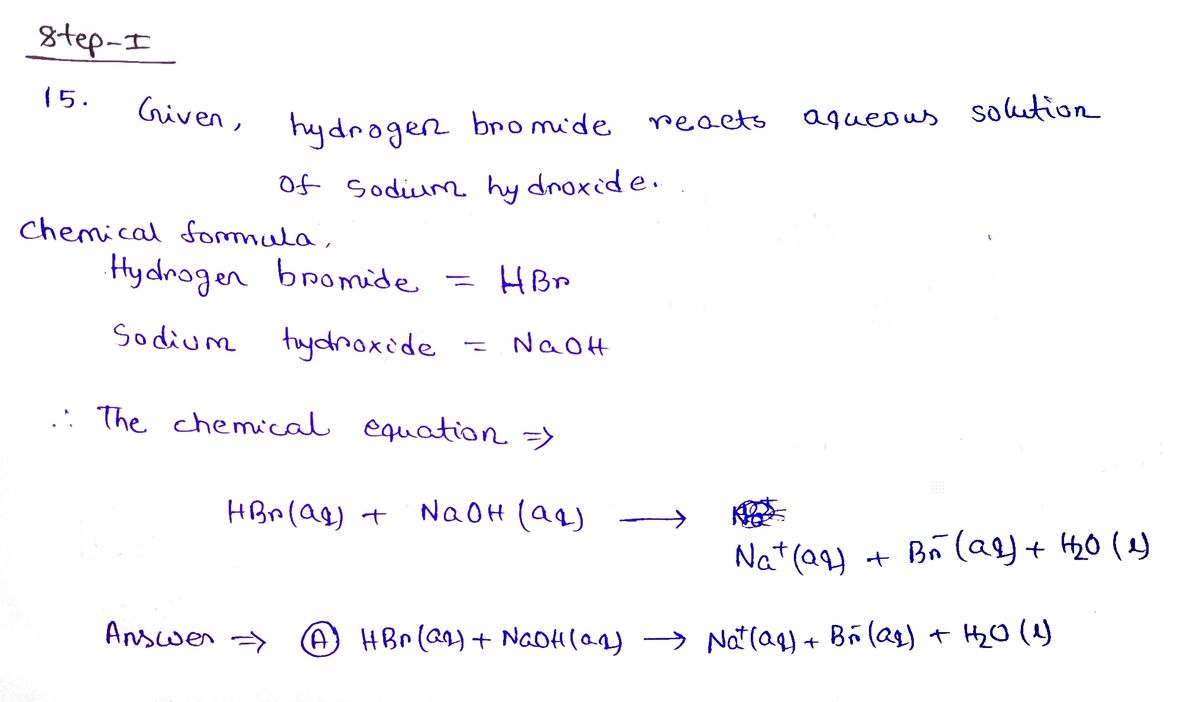 Step-I
15. Given, hydrogen bromide reacts aqueous solution
of sodium hydroxide.
Chemical formula,
Hydrogen bromide = HBr
Sodium hydroxide = NaOH
∴ The chemical equation ⇒
HBr(aq) + NaOH (aq) ⟶
Na⁺(aq) + Br⁻(aq) + H₂O (l)
Answer ⇒ Ⓐ HBr(aq) + NaOH(aq) ⟶ Na⁺(aq) + Br⁻(aq) + H₂O (l)